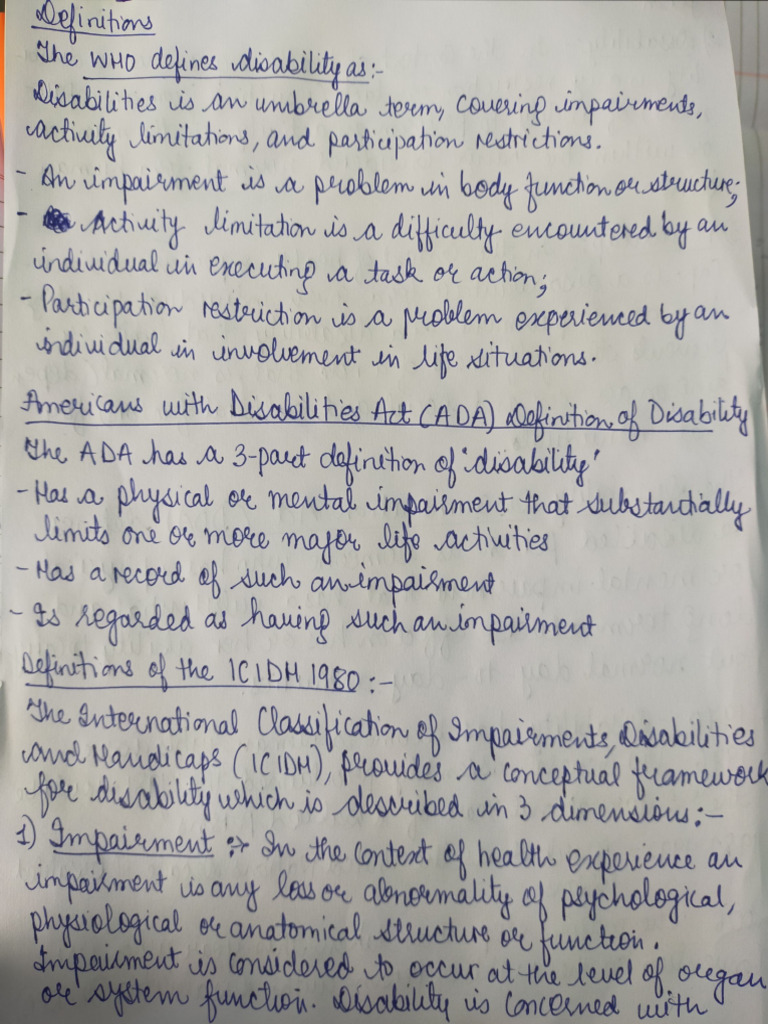 Definitions
The WHO defines disability as:-
Disabilities is an umbrella term, covering impairments,
activity limitations, and participation restrictions.
- An impairment is a problem in body function or structure;
- Activity limitation is a difficulty encountered by an
individual in executing a task or action;
- Participation restriction is a problem experienced by an
individual in involvement in life situations.
Americans with Disabilities Act (ADA) Definition of Disability
The ADA has a 3-part definition of 'disability'
- Has a physical or mental impairment that substantially
limits one or more major life activities
- Has a record of such an impairment
- Is regarded as having such an impairment
Definitions of the ICIDH 1980:-
The International Classification of Impairments, Disabilities
and Handicaps (ICIDH), provides a conceptual framework
for disability which is described in 3 dimensions:-
1) Impairment :- In the context of health experience an
impairment is any loss or abnormality of psychological,
physiological or anatomical structure or function.
Impairment is considered to occur at the level of organ
or system function. Disability is concerned with